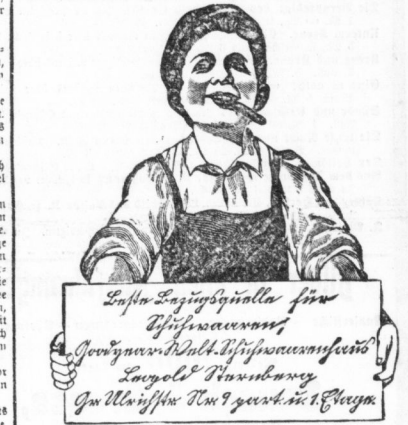 Beste Bezugsquelle für
Schuhwaaren:
Goodyear-Welt-Schuhwaarenhaus
Leopold Sternberg
Gr. Ulrichstr. Nr. 9 part. u. 1. Etage.